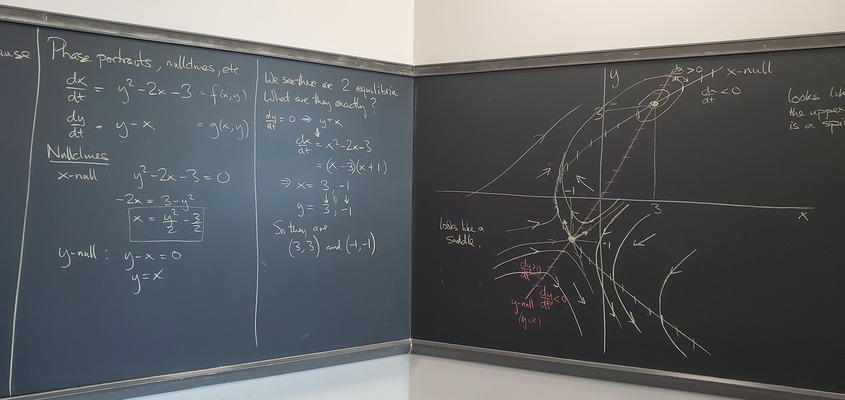 ause
Phase portraits, nullclines, etc.
dx/dt = y² - 2x - 3 = f(x,y)
dy/dt = y - x = g(x,y)
Nullclines
x-null: y² - 2x - 3 = 0
-2x = 3 - y²
x = y²/2 - 3/2
y-null: y - x = 0
y = x
We see there are 2 equilibria
What are they exactly?
dy/dt = 0 ⇒ y = x
↓
dx/dt = x² - 2x - 3
= (x - 3)(x + 1)
⇒ x = 3, -1
↓ ↓
y = 3, -1
So they are
(3,3) and (-1,-1)
y
dx/dt > 0
x-null
dx/dt < 0
3
-1
3
x
-1
looks like a
saddle.
dy/dt > 0
y-null dy/dt < 0
(y=x)
looks like
the upper
is a spi